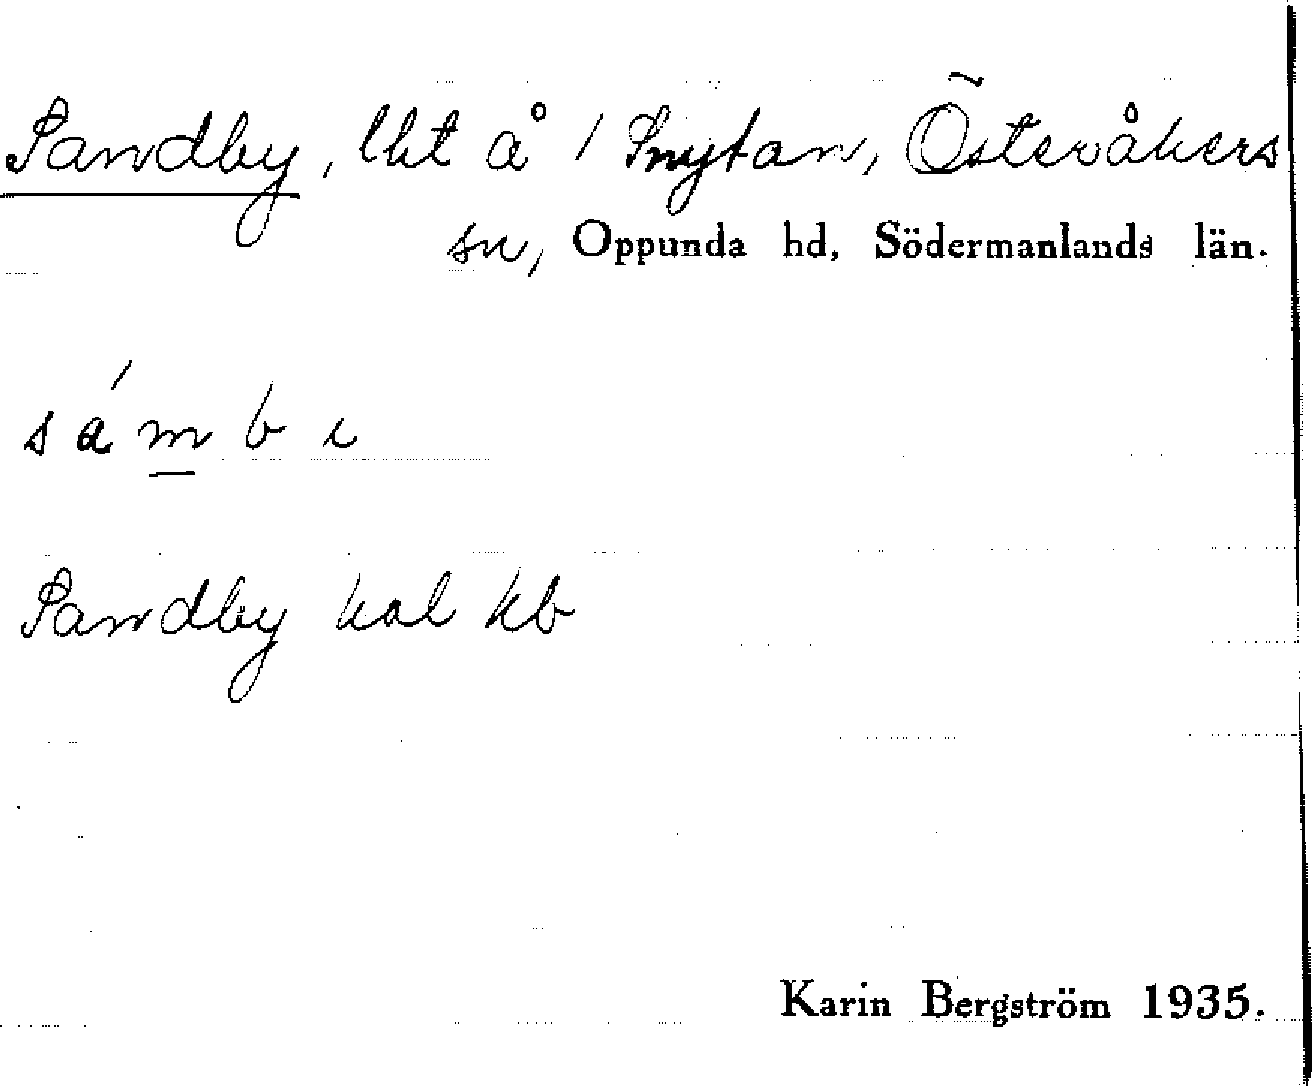 Sandby, lht å 1 Snytan, Österåkers
sn, Oppunda hd, Södermanlands län.
sámbi
Sandby hal kb
Karin Bergström 1935.